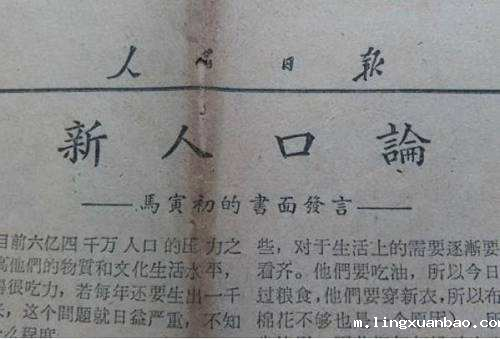 人民日報
新人口論
——馬寅初的書面發言——
目前六亿四千万人口的压力之
高他們的物質和文化生活水平,
得很吃力,若每年还要生出一千
来,这个問題就日益严重,不知
什么程度
些,对于生活上的需要逐漸要
看齐。他們要吃油,所以今日
过粮食,他們要穿新衣,所以布
棉花不够也是一个原因),所
m.lingxuanbao.com